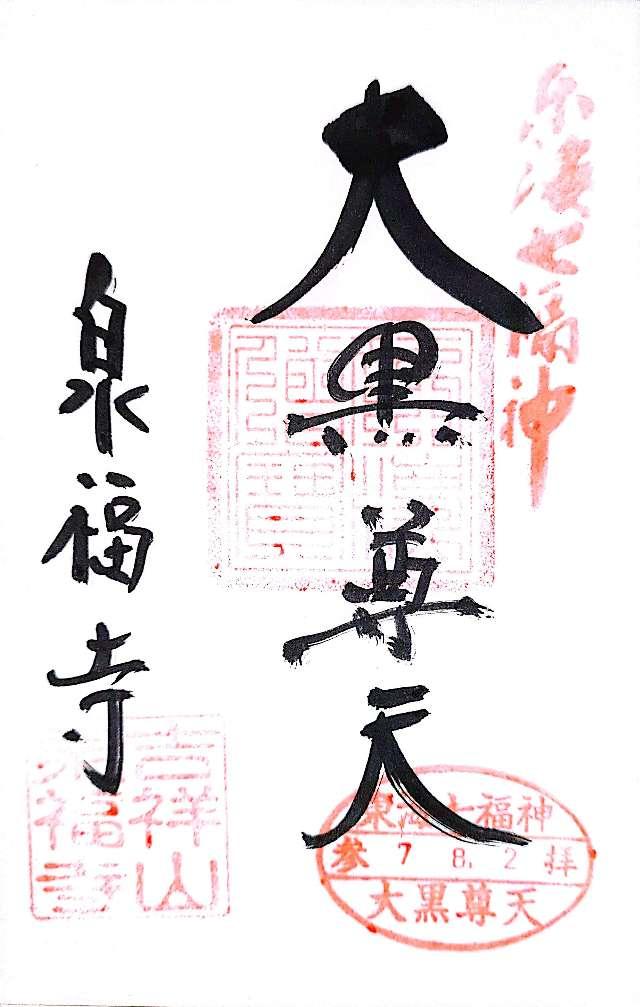 東海七福神
大黒尊天
泉福寺
吉祥山
泉福寺
東海七福神
参 7 8. 2 拝
大黒尊天